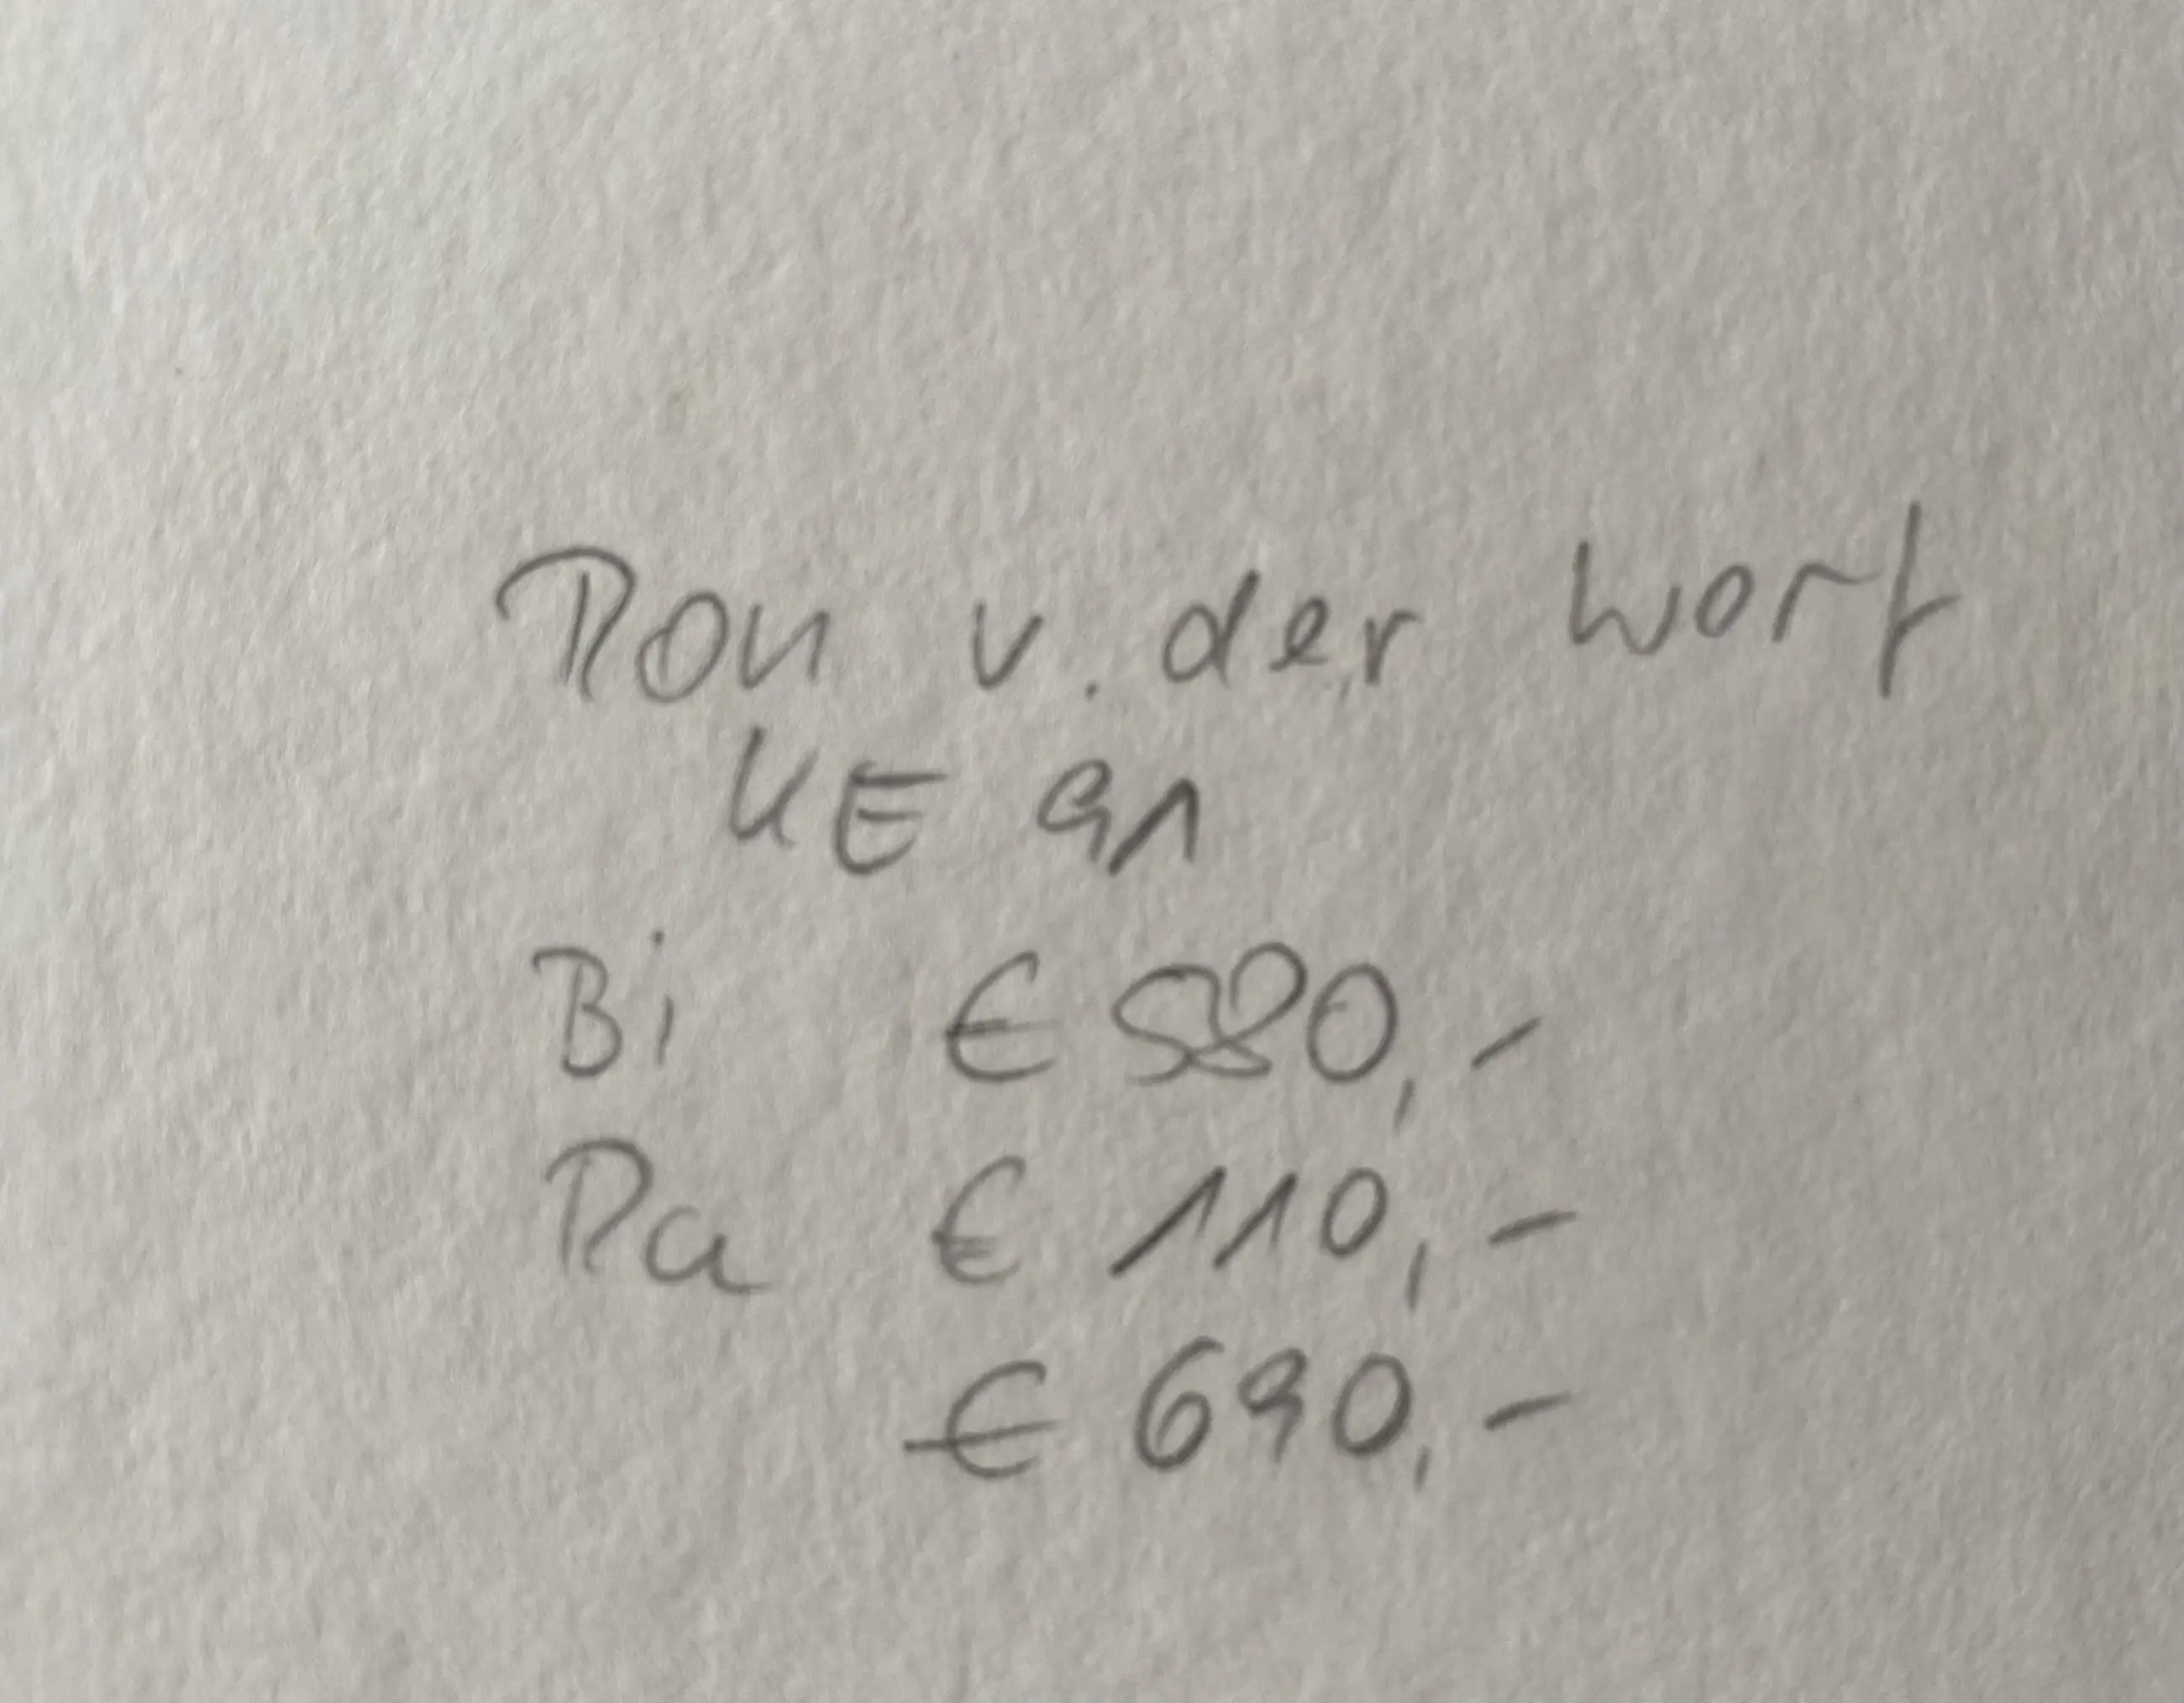 Ron v. der Worf
KE 91
Bi € 580,-
Ra € 110,-
€ 690,-